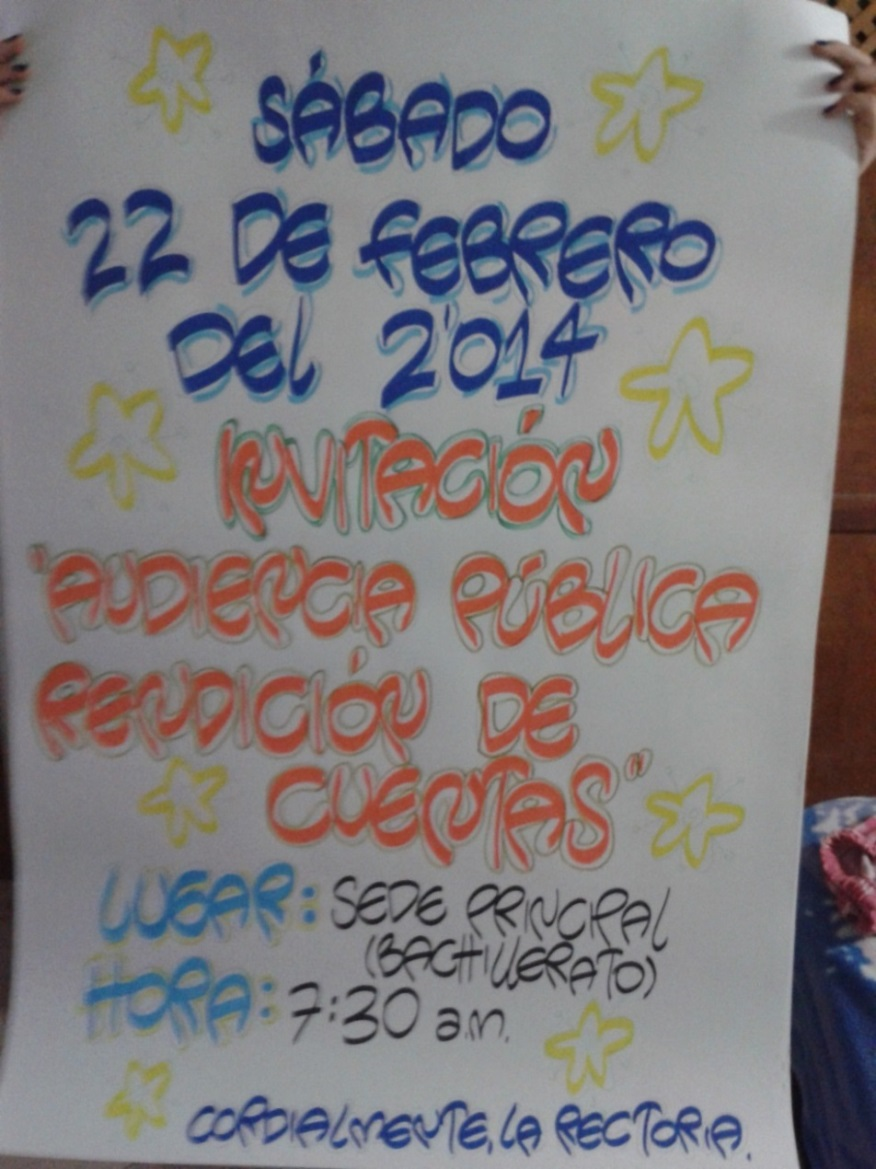 SÁBADO
22 DE FEBRERO
DEL 2'014
INVITACIÓN
"AUDIENCIA PÚBLICA
RENDICIÓN DE
CUENTAS"
LUGAR: SEDE PRINCIPAL
(BACHILLERATO)
HORA: 7:30 a.m.
CORDIALMENTE, LA RECTORIA.